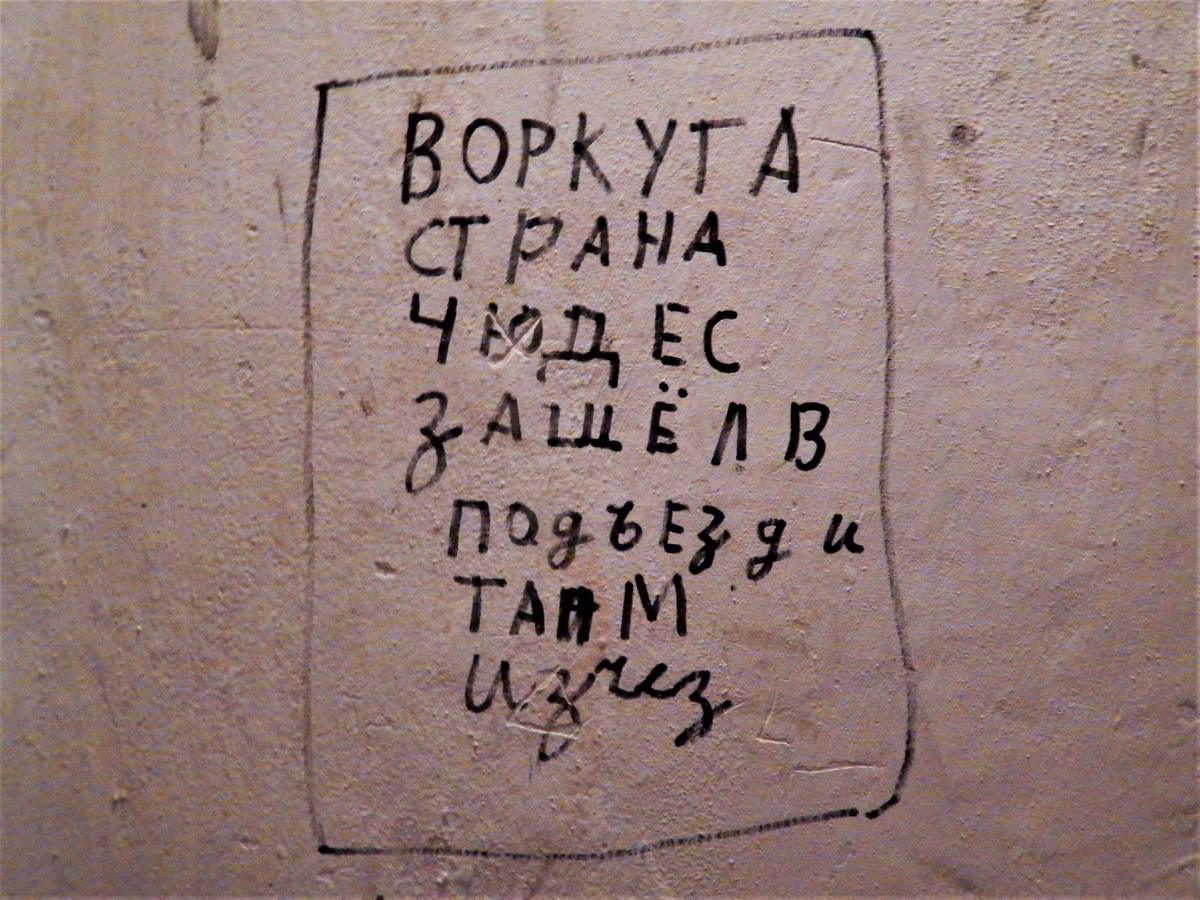 ВОРКУТА
СТРАНА
ЧЮДЕС
ЗАШЁЛ В
подъЕзд и
ТАМ
изчез